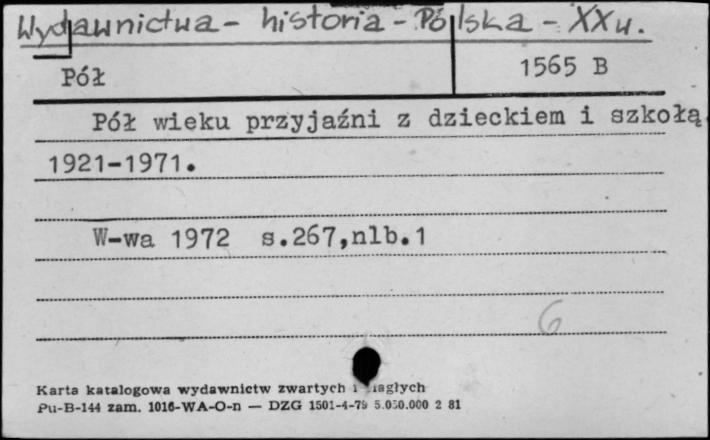 Wydawnictwa - historia - Polska - XX w.
Pół
1565 B
Pół wieku przyjaźni z dzieckiem i szkołą.
1921-1971.
W-wa 1972 s.267,nlb.1
6
Karta katalogowa wydawnictw zwartych i ciągłych
Pu-B-144 zam. 1016-WA-O-n — DZG 1501-4-79 5.050.000 2 81